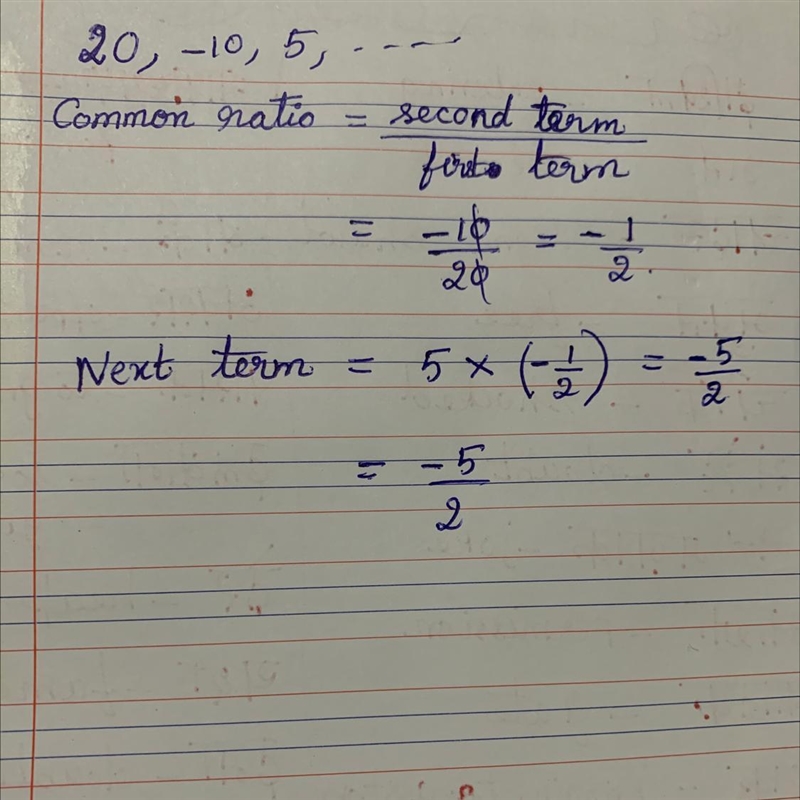 20, -10, 5, .....
Common ratio = second term / first term
= -10/20 = -1/2.
Next term = 5 × (-1/2) = -5/2
= -5/2